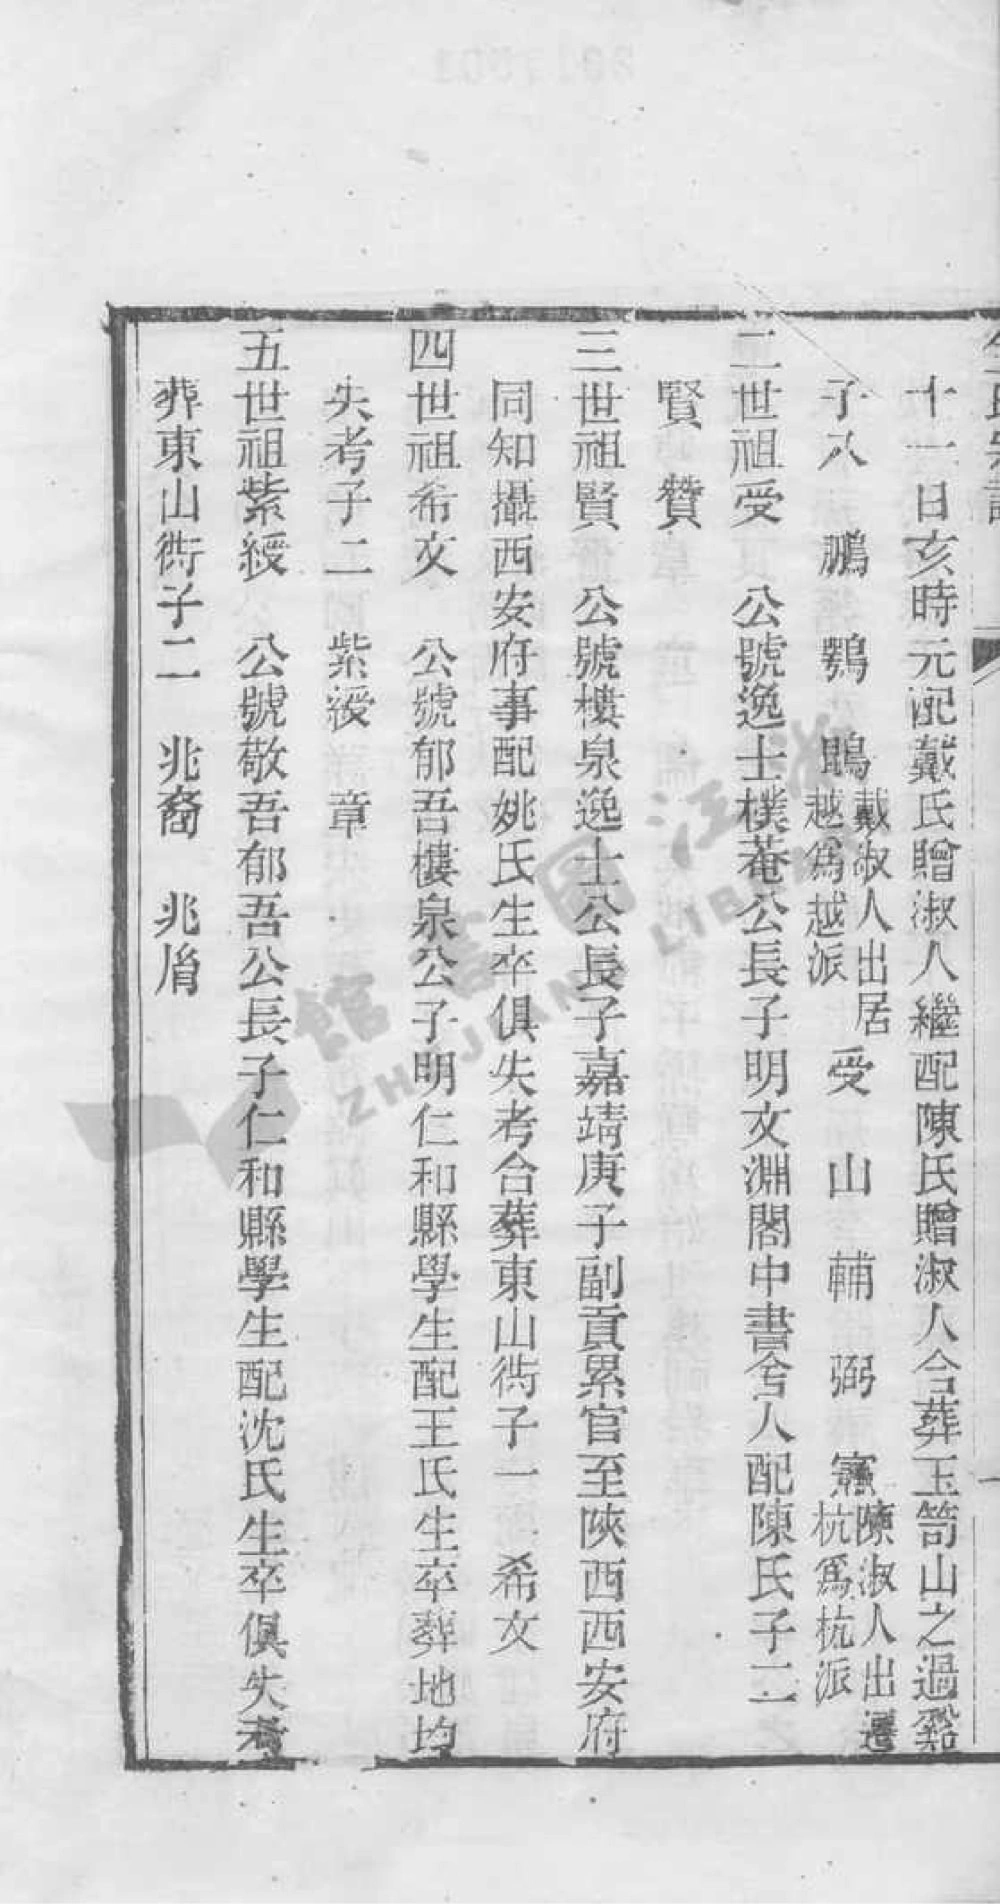 十一日亥時元配戴氏贈淑人繼配陳氏贈淑人合葬玉笥山之過谿
子八 鵬 鶚 鵾 戴淑人出居越爲越派 受 山 輔 弼 寵 陳淑人出遷杭爲杭派
二世祖受 公號逸士樸菴公長子明文淵閣中書舍人配陳氏子二
賢 贊
三世祖賢 公號樓泉逸士公長子嘉靖庚子副貢累官至陝西西安府
同知攝西安府事配姚氏生卒俱失考合葬東山衖子一 希文
四世祖希文 公號郁吾樓泉公子明仁和縣學生配王氏生卒葬地均
失考子二 紫綬 章
五世祖紫綬 公號敬吾郁吾公長子仁和縣學生配沈氏生卒俱失考
葬東山衖子二 兆裔 兆㡿
浙江圖書館
ZHEJIANG LIBRARY